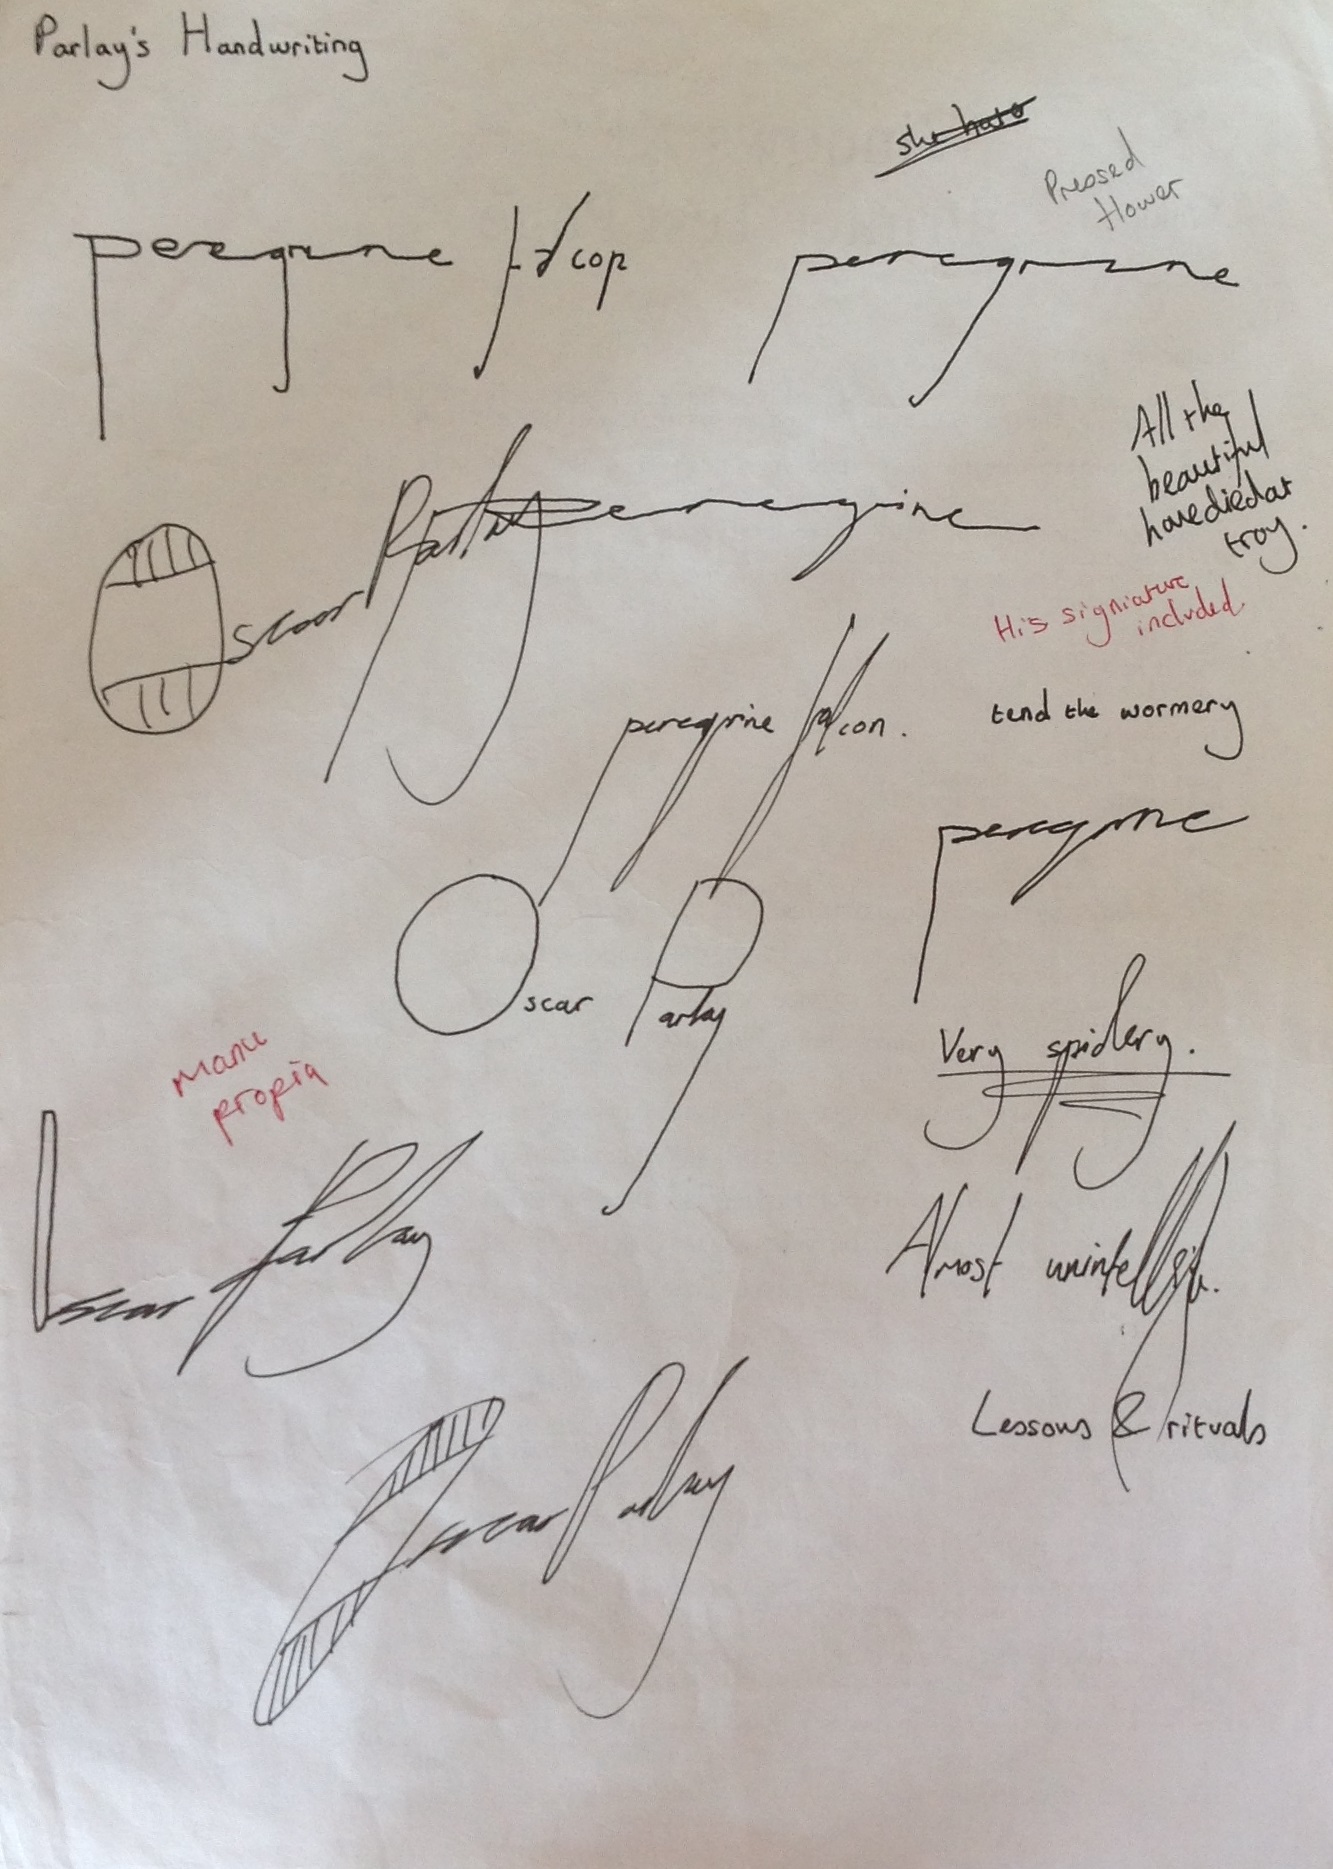 Parlay's Handwriting
she hate
Pressed
flower
peregrine falcon
peregrine
All the
beautiful
have died at
troy.
Oscar Parlay peregrine
His signiature
included
peregrine falcon.
tend the wormery
peregrine
Oscar Parlay
Very spidery.
Manu
propia
Oscar Parlay
Almost
Lessons & rituals
Oscar Parlay